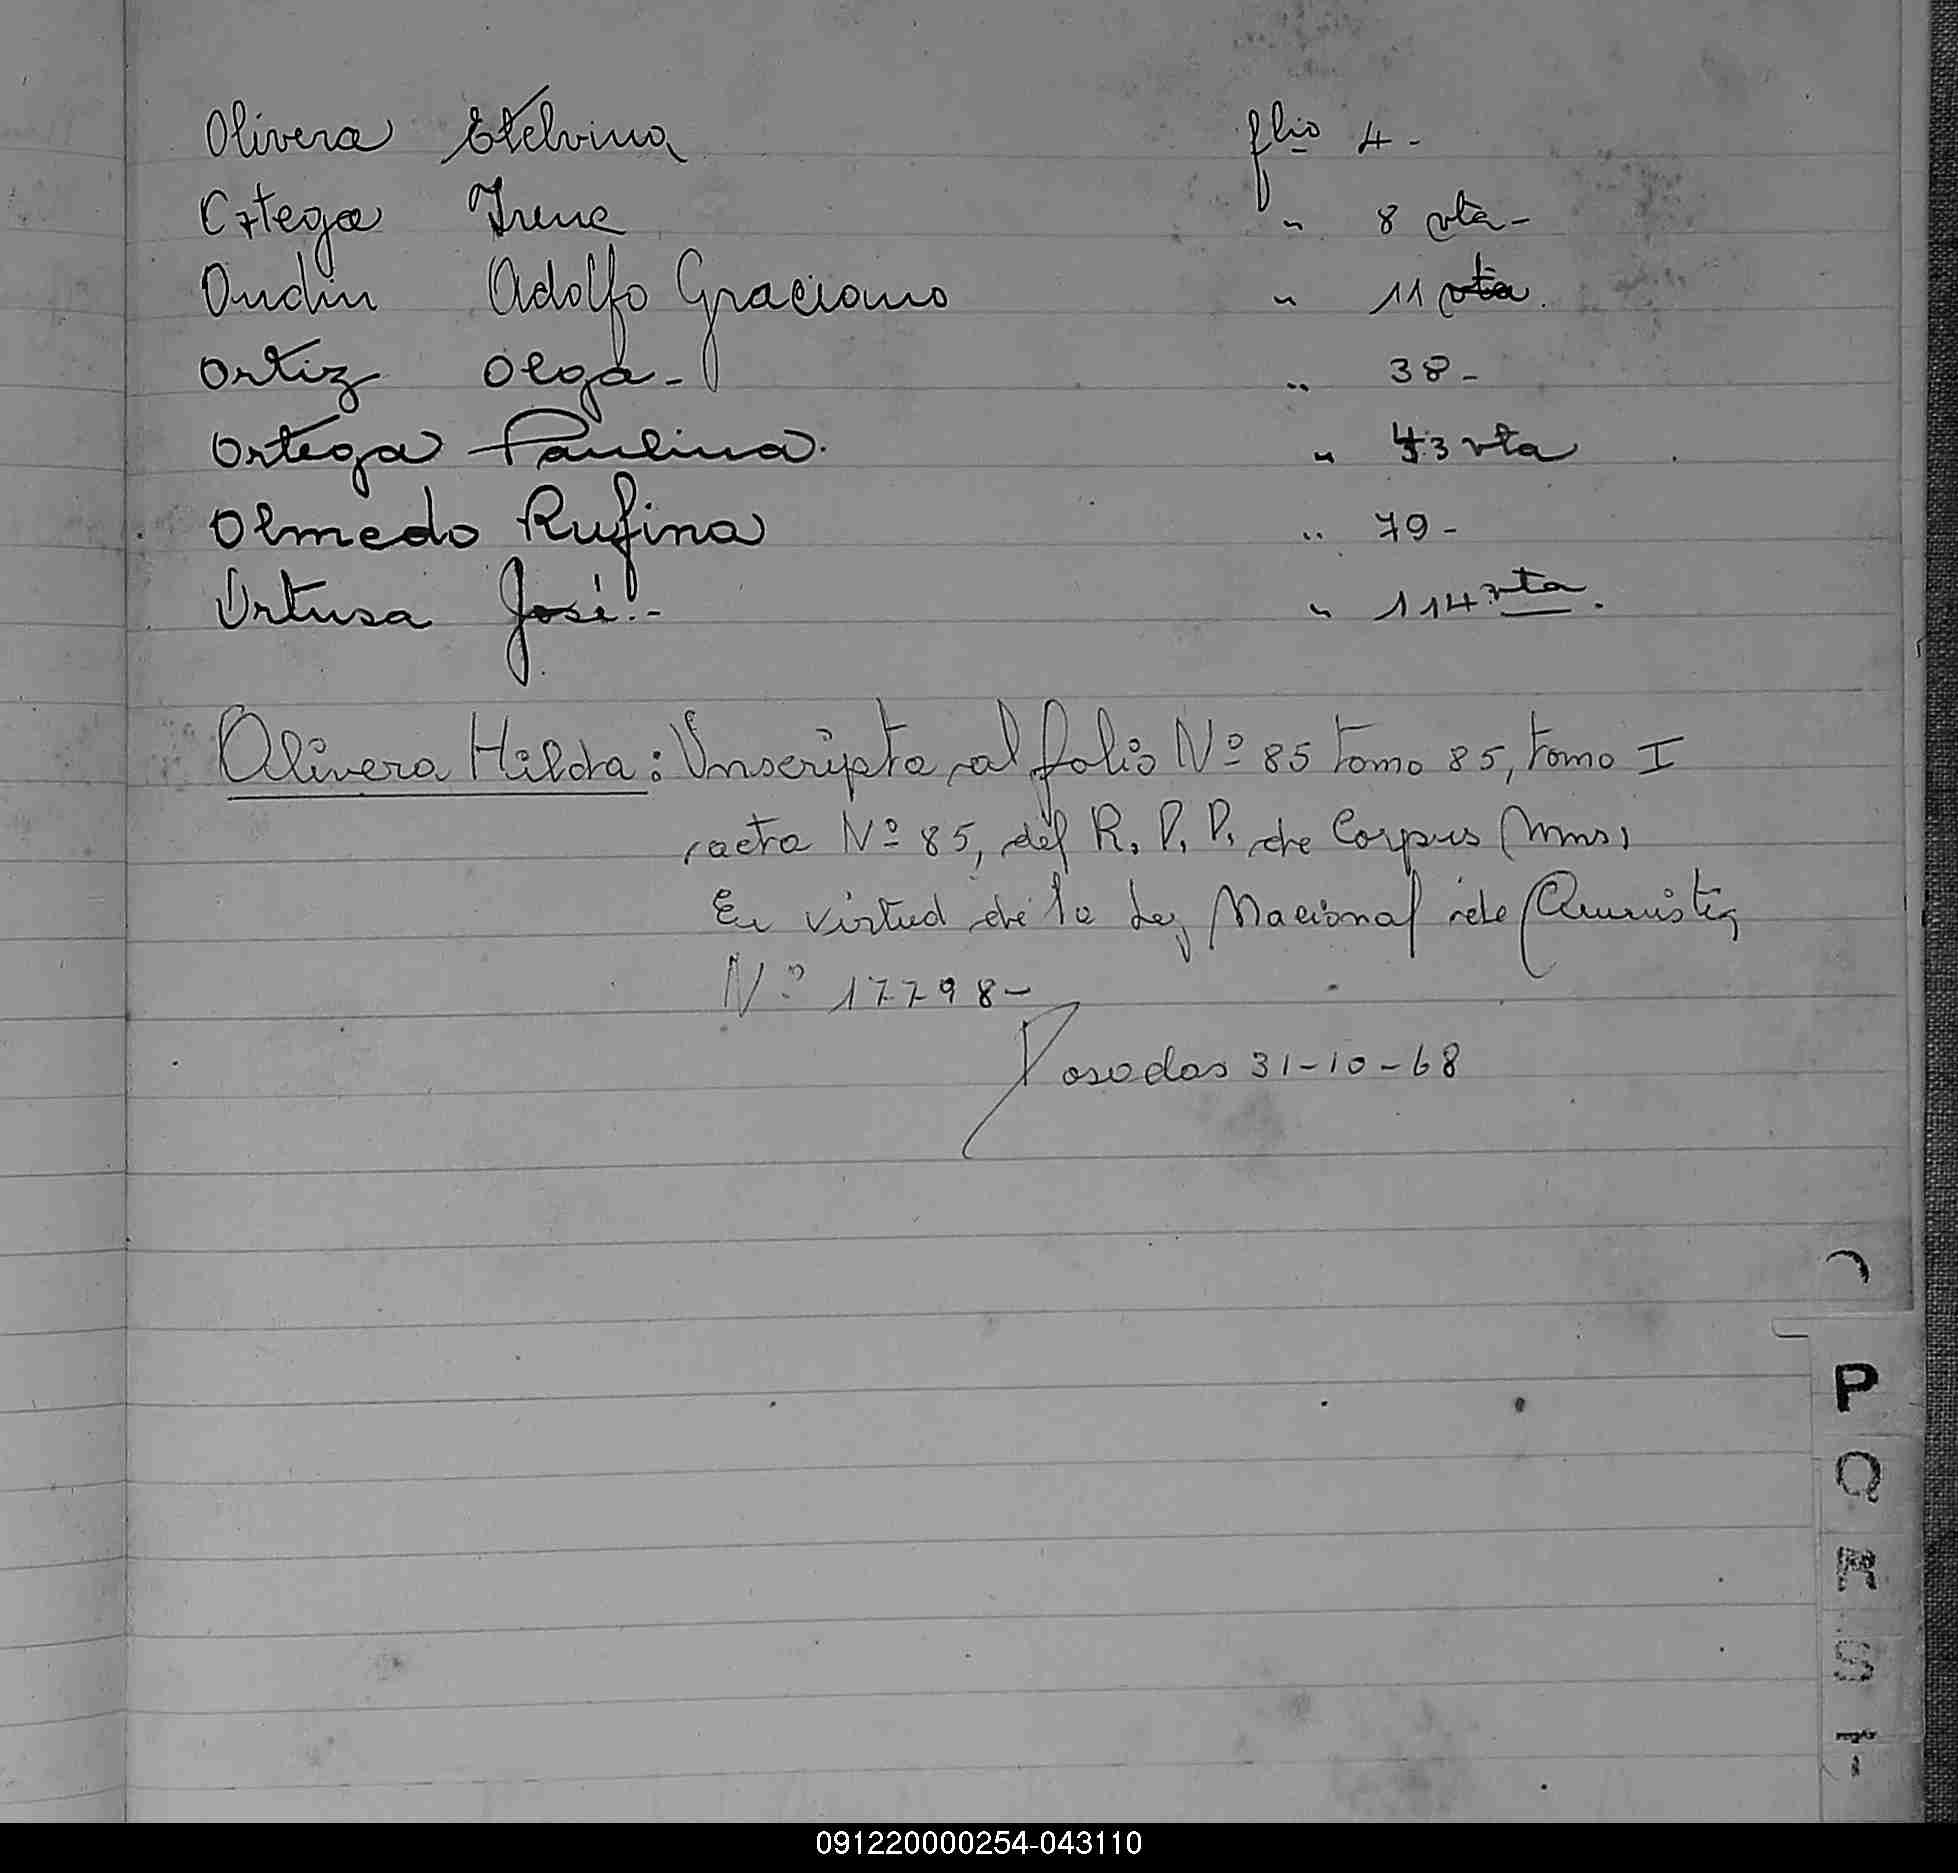 Olivera Etelvina flio 4 -
Ortega Irene " 8 vta -
Ondin Adolfo Graciano " 11 vta.
Ortiz Olga - " 38 -
Ortega Paulina. " 43 vta
Olmedo Rufina " 79 -
Ortusa José. - " 114 vta.
Olivera Hilda: Inscripta al folio Nº 85 tomo 85, tomo I
acta Nº 85, del R. P. P. de Corpus (Mnes)
En virtud de la Ley Nacional de Amnistia
Nº 17798 -
Posadas 31-10-68
P
Q
R
S
T
091220000254-043110